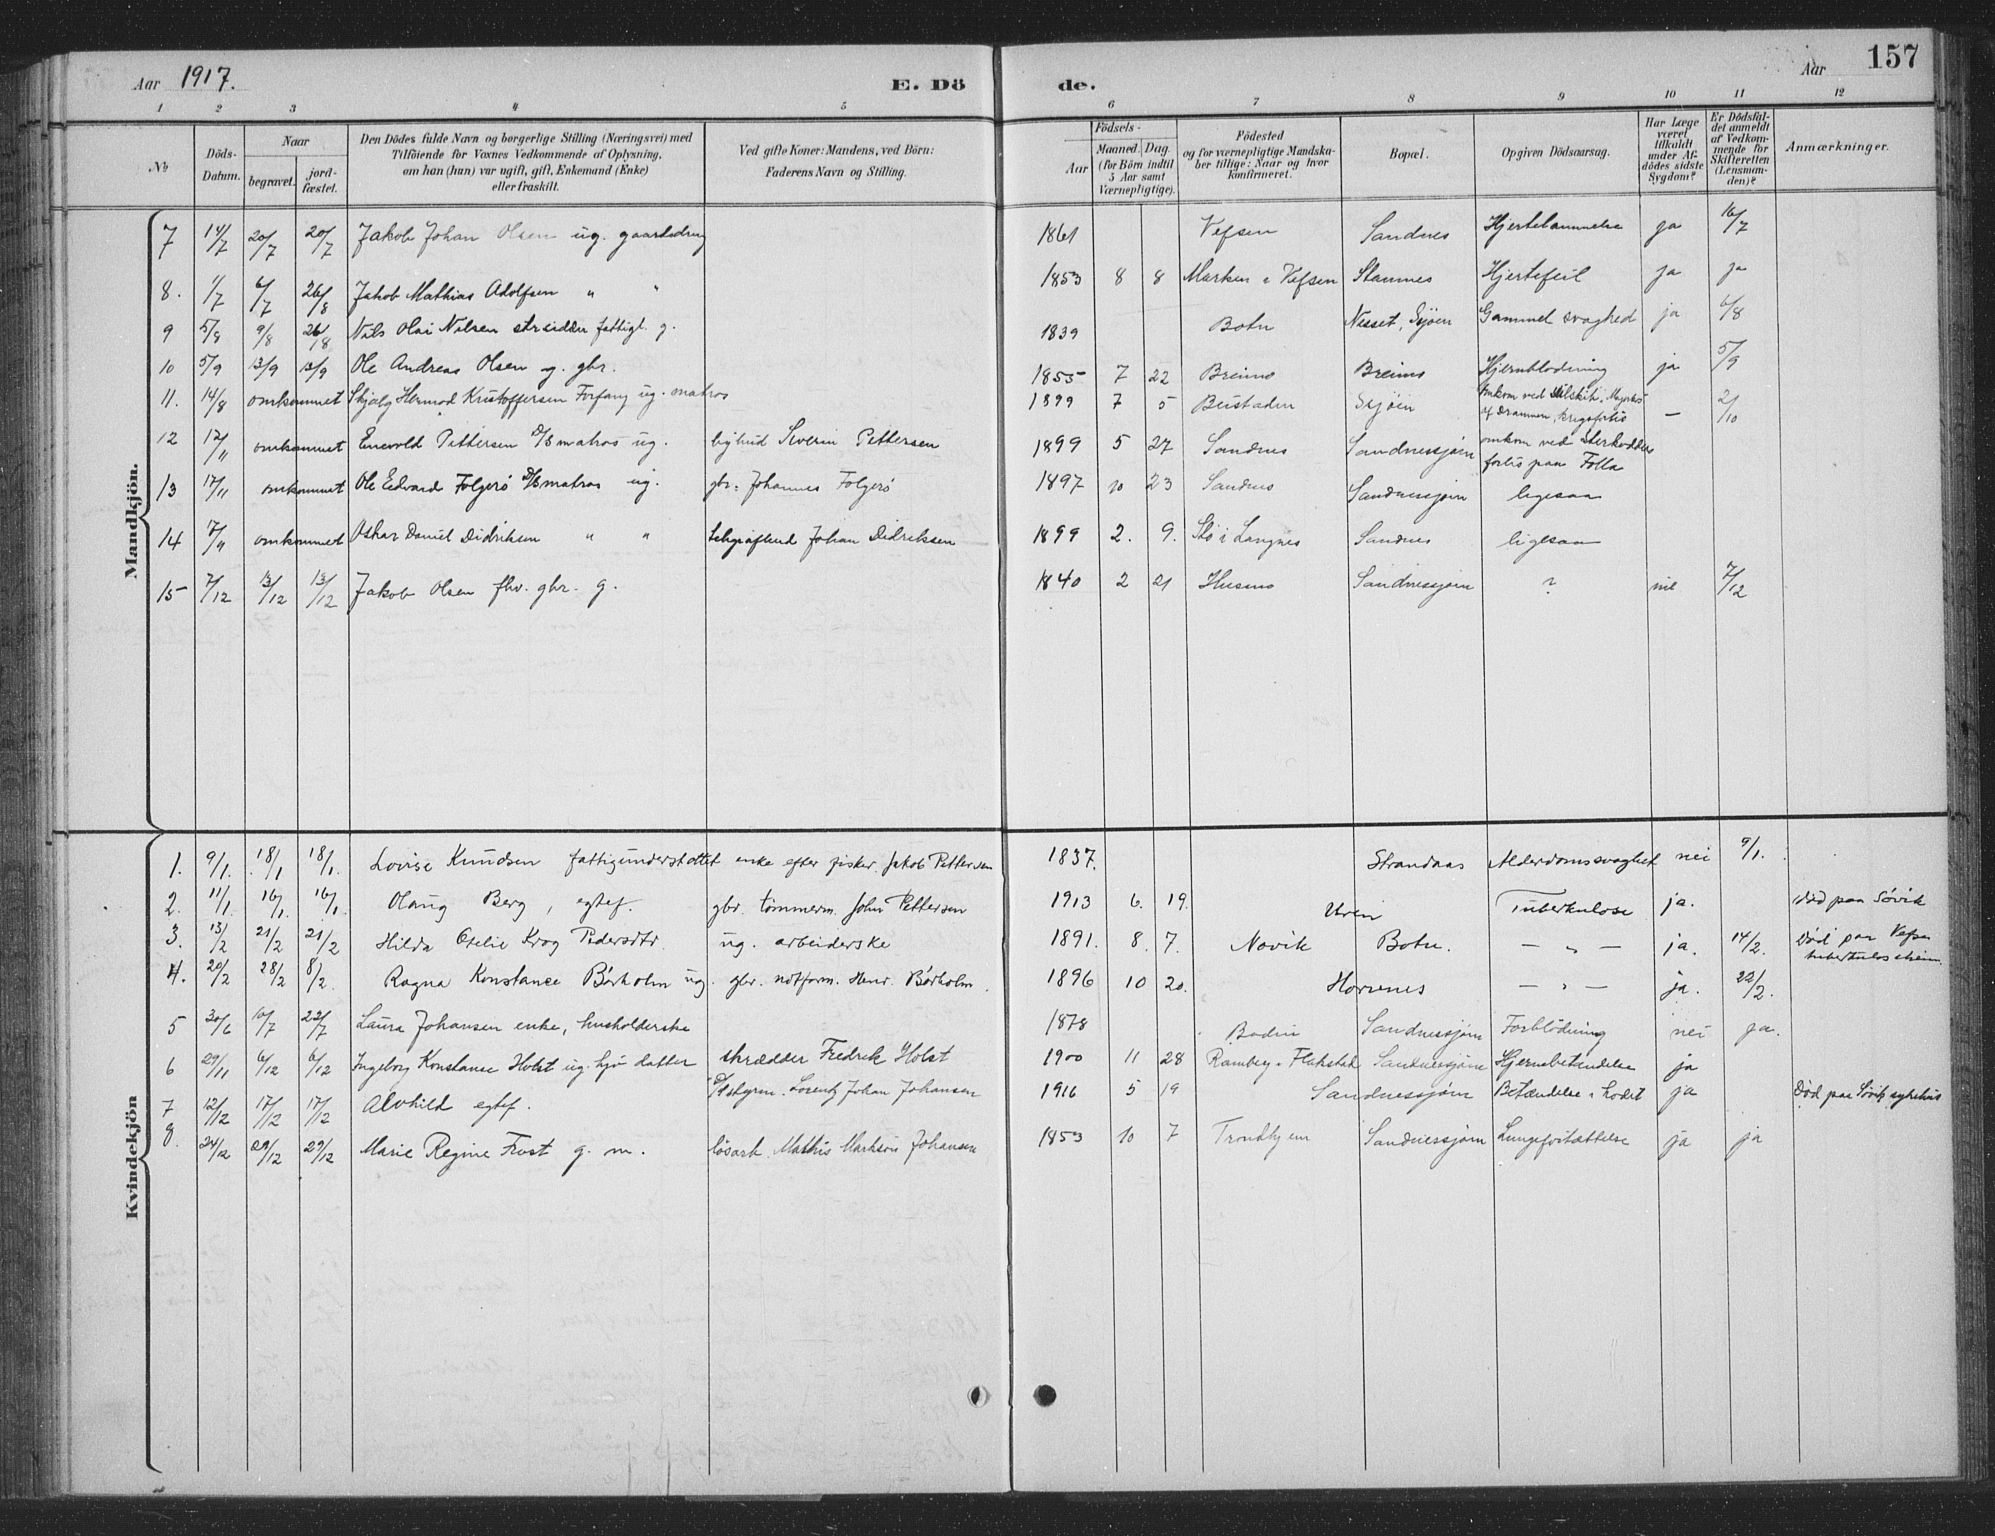 Aar 1917. E. Dö
1 2 3 4 5
№ Döds-Datum. Naar begravet. jord-fæstet. Den Dödes fulde Navn og borgerlige Stilling (Næringsvei) med Tilföiende for Voxnes Vedkommende af Oplysning, om han (hun) var ugift, gift, Enkemand (Enke) eller fraskilt. Ved gifte Koner: Mandens, ved Börn: Faderens Navn og Stilling.
de. Aar 157
6 7 8 9 10 11 12
Födsels- Aar Maaned. Dag. (for Börn indtil 5 Aar samt Værnepligtige). Födested og for værnepligtige Mandskaber tillige: Naar og hvor konfirmeret. Bopæl. Opgiven Dödsaarsag. Har Læge været tilkaldt under Afdödes sidste Sygdom? Er Dödsfaldet anmeldt af Vedkommende for Skifteretten (Lensmanden)? Anmærkninger.
Mandkjön.
7 14/7 20/7 20/7 Jakob Johan Olsen ug. 1861 Vefsen Sandnes Hjertelammelse ja 16/7
8. 1/7 6/7 26/8 Jakob Mathias Adolfsen " " 1853 8 8 Marken i Vefsen Stamnes Hjertefeil ja ja
9 5/8 9/8 26/8 Nils Olai Nilsen strsidder fattigl. g. 1839 Botn Nesset, Sjøen Gammel svaghed ja 6/8
10 5/9 13/9 13/9 Ole Andreas Olsen g. gbr. 1855 7 22 Breimo Breimo Hjernblødning ja 5/9
11. 14/8 omkommet Skjalg Hermod Kristoffersen Forfang ug. matros 1899 7 5 Bustaden Sjøen omkom ved
af Drammen, krigsforlis — 2/10
12 12/11 omkommet Enevold Pettersen D/S matros ug. Severin Pettersen 1899 5 27 Sandnes Sandnessjøen omkom ved Sterkodders
forlis paa Folla
13 17/11 omkommet Ole Edvard Folgerö D/S matros ug. gbr. Johannes Folgerö 1897 10 23 Sandnes Sandnessjøen ligesaa
14 17/11 omkommet Oskar Daniel Didriksen " " Johan Didriksen 1899 2. 9. Stø i Langnes Sandnes ligesaa
15 7/12 13/12 13/12 Jakob Olsen fhv. gbr. g. 1840 2 21 Husmo Sandnessjøen ? nei 7/12
Kvindekjön
1. 9/1. 18/1 18/1. Lovise Knudsen fattigunderstøttet enke efter fisker Jakob Pettersen 1837. Strandaas Alderdomssvaghet nei 9/1.
2. 11/1. 16/1. 16/1. Olaug Berg, egtef. gbr. tömmerm. John Pettersen 1913 6. 19. Uren Tuberkulose ja. død paa Søvik
3. 13/2 21/2 21/2 Hilda Otelie Krog Pedersdtr. ug. arbeiderske 1891. 8. 7. Novik Botn. — " — ja. 14/2. Død paa Vefsn
tuberkuloseheim.
4. 20/2 28/2 8/2. Ragna Konstance Börholm ug. gbr. notform. Henr. Börholm. 1896 10 20. Horvnes — " — ja. 22/2.
5 30/6 10/7 22/7 Laura Johansen enke, husholderske 1878 Bodin Sandnessjøen Forblödning nei ja.
6 29/11 6/12 6/12 Ingeborg Konstanse Holst ug. hjv datter skrædder Fredrik Holst 1900 11 28 Ramberg i Flakstad Sandnessjøen Hjernebetændelse ja
7 12/12 17/12 17/12 Alvhild egtef. D/S styrm. Lorentz Johan Johansen 1916 5 19 Sandnessjøen Betændelse i hodet ja Død paa Søvik sykehus
8. 24/12 29/12 29/12 Marie Regine Frost g. m. løsarb. Mathis Markus Johansen 1853 10 7 Trondhjem Sandnessjøen Lungefortættelse ja ja